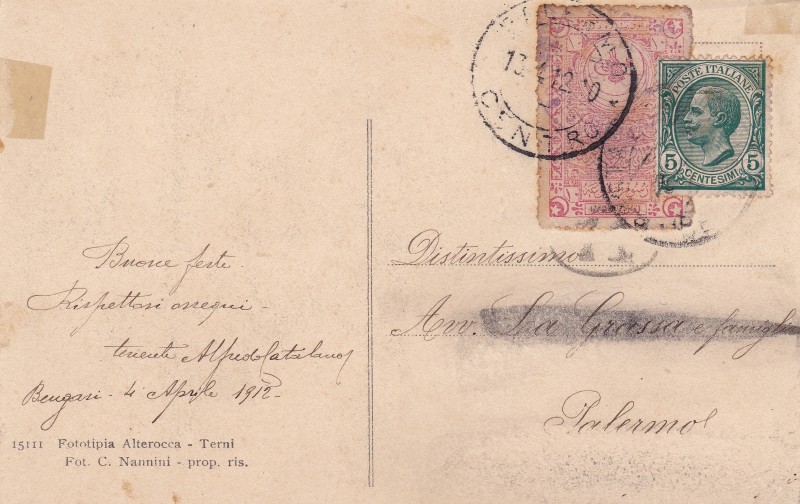 Buone feste
Rispettosi ossequi
tenente Alfredo Catalano
Bengasi - 4 Aprile 1912 -
15111 Fototipia Alterocca - Terni
Fot. C. Nannini - prop. ris.
CENTRO
POSTE ITALIANE
5 5
CENTESIMI
Distintissimo
Avv. La Grassa e famiglia
Palermo